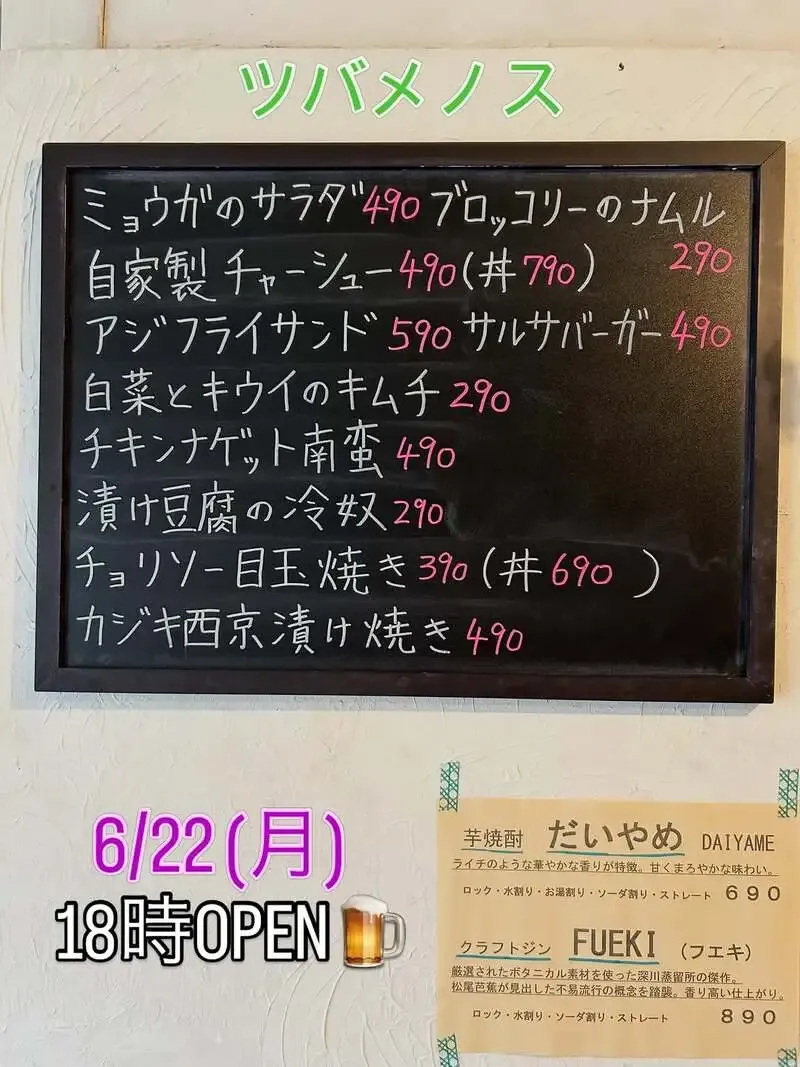 ツバメノス
ミョウガのサラダ490 ブロッコリーのナムル
290
自家製チャーシュー490(丼790)
アジフライサンド 590 サルサバーガー490
白菜とキウイのキムチ290
チキンナゲット南蛮 490
漬け豆腐の冷奴290
チョリソー目玉焼き390(丼690)
カジキ西京漬け焼き 490
6/22(月)
18時OPEN
芋焼酎 だいやめ DAIYAME
ライチのような華やかな香りが特徴。甘くまろやかな味わい。
ロック・水割り・お湯割り・ソーダ割り・ストレート 690
クラフトジン FUEKI (フエキ)
厳選されたボタニカル素材を使った深川蒸留所の傑作。
松尾芭蕉が見出した不易流行の概念を踏襲。香り高い仕上がり。
ロック・水割り・ソーダ割り・ストレート 890